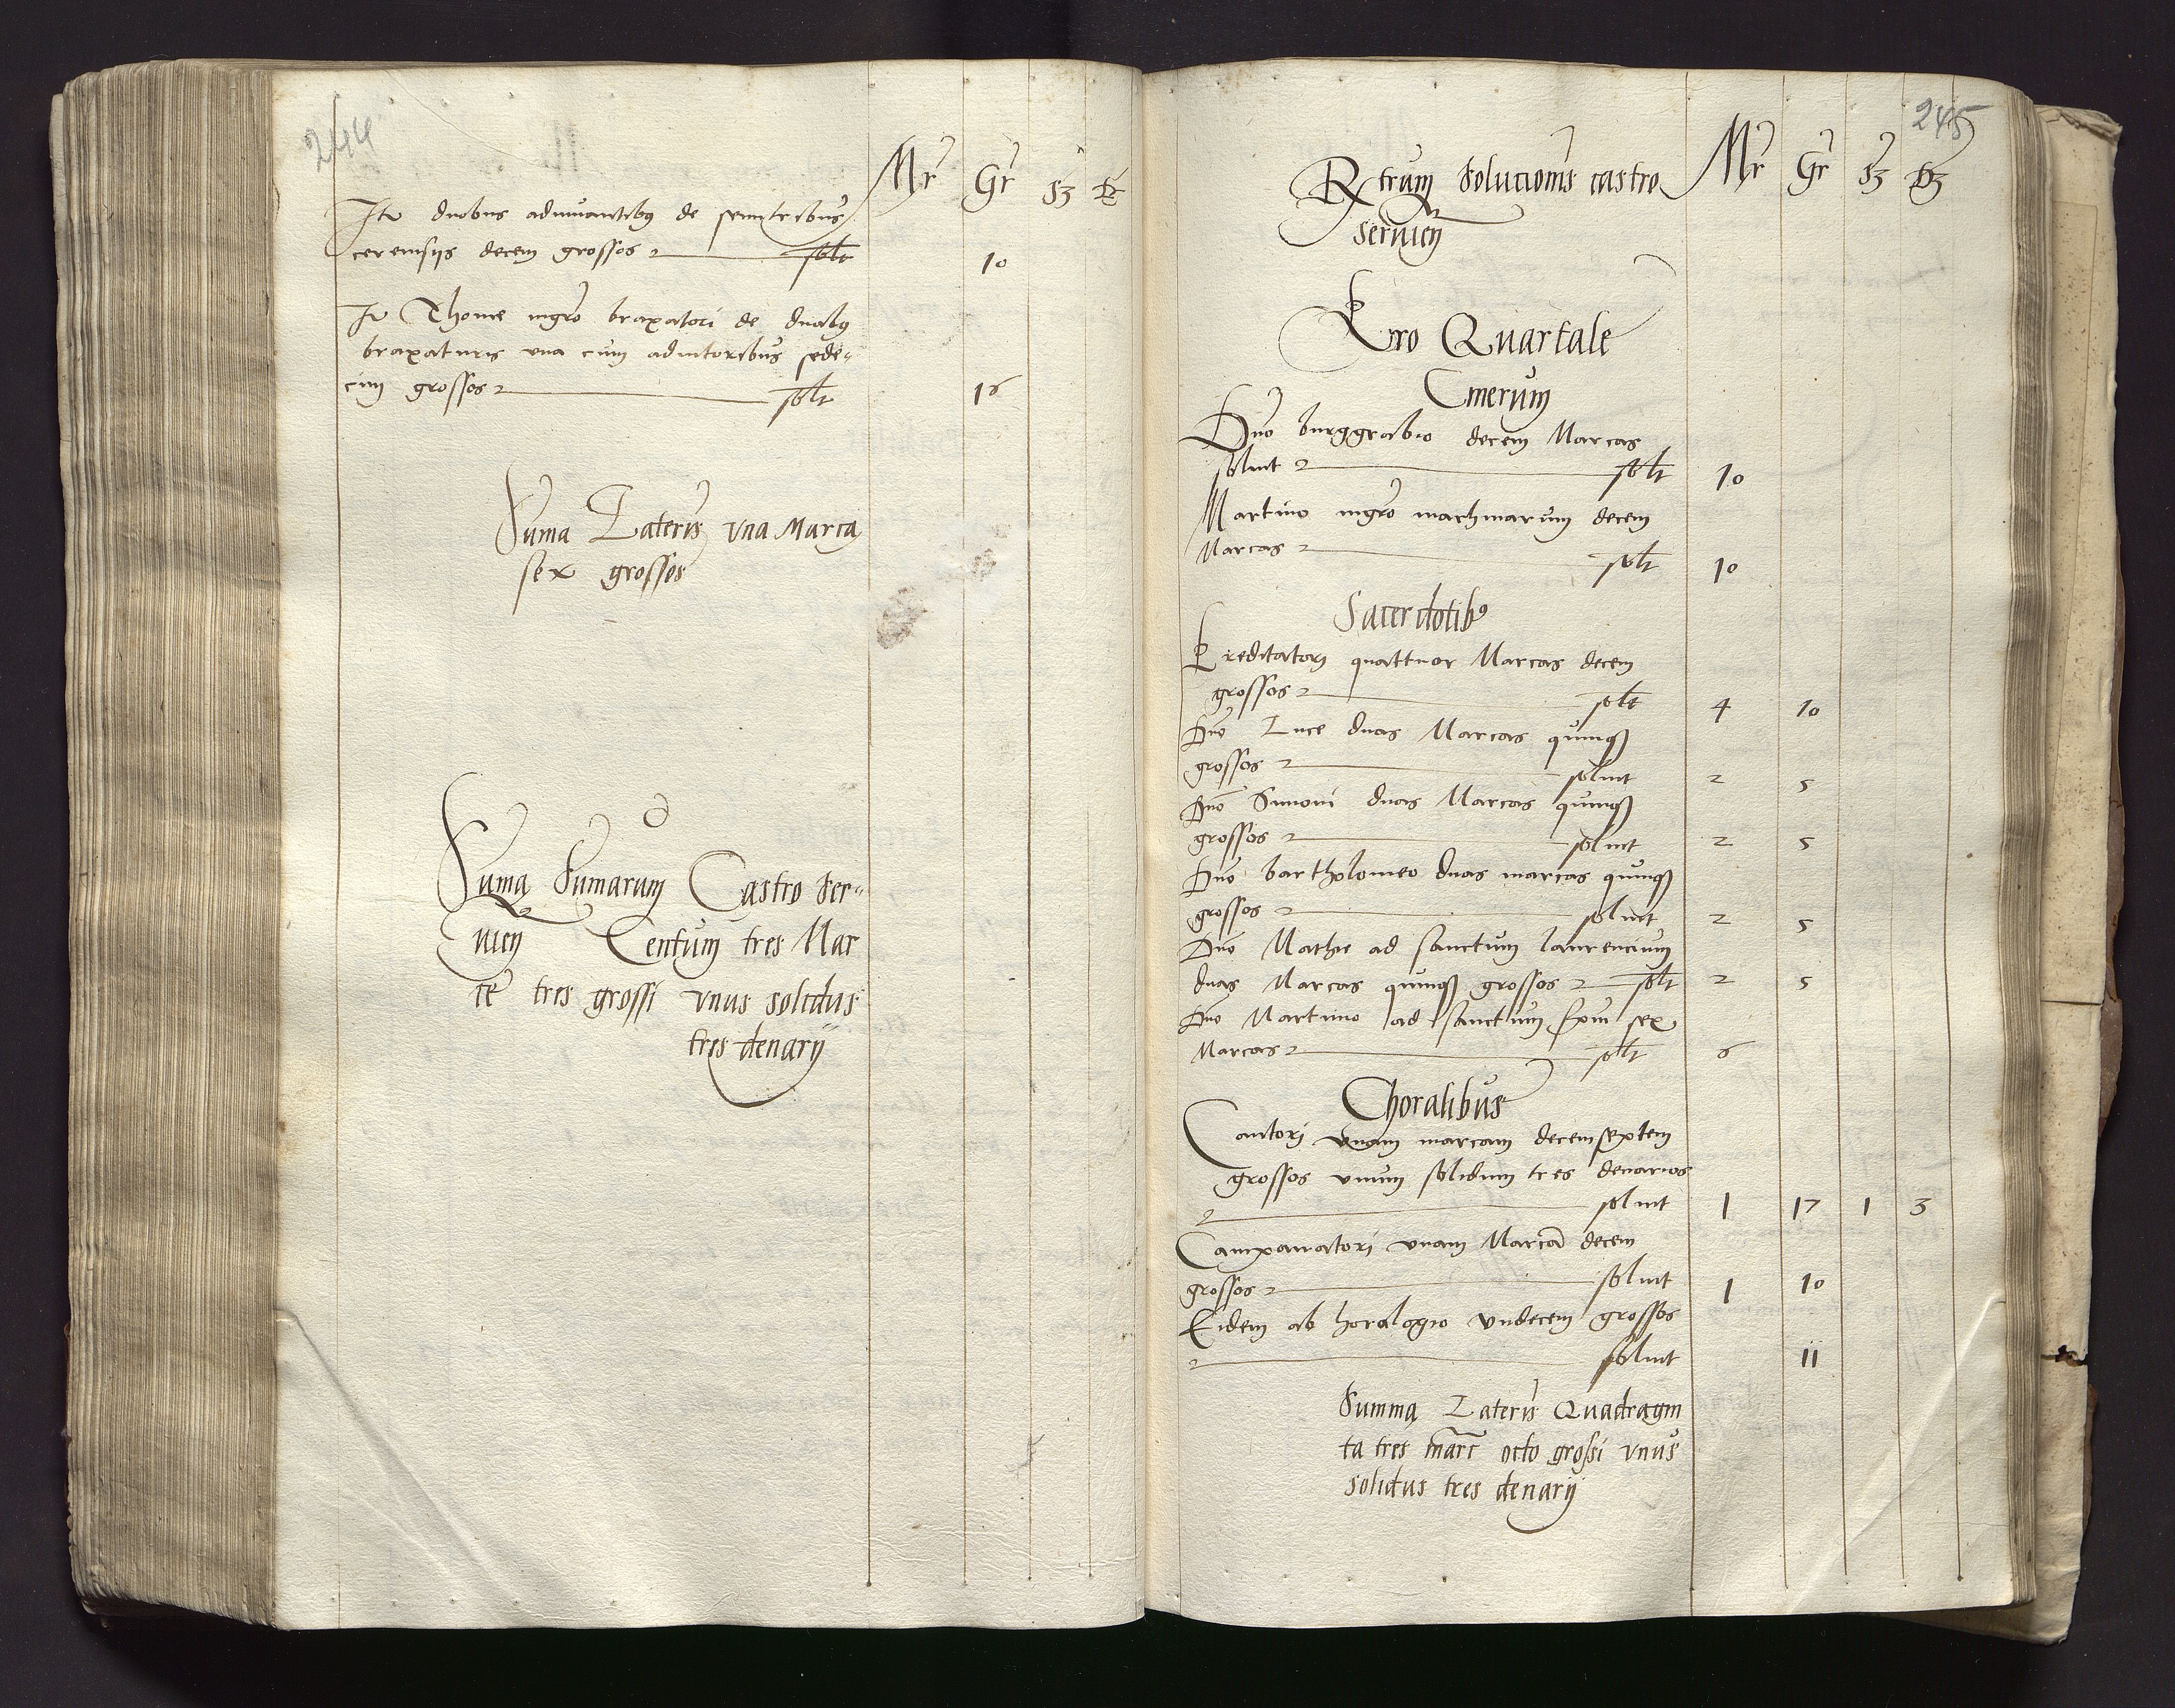 244
Mr Gr
It duobus adiuvantibus de semitribus
cerevisijs decem grossos solt 10
It Thome nigro braxatori de duabus
braxaturis una cum adiutoribus sede-
cim grossos solt 16
Suma Lateris Vna Marca
sex grossos
Suma Sumarum Castro ser-
uien Centum tres Mar
ce tres grossi vnus solidus
tres denarij
245
Mr Gr
Rxtrum Solucionis castro
seruien
Pro Quartale
Cinerum
Dno burggrabio decem Marcas
soluit solt 10
Martino nigro machinarum decem
Marcas solt 10
Sacerdotibus
Predicatori quattuor Marcas decem
grossos solt 4 10
Dno Luce duas Marcas quinque
grossos soluit 2 5
Dno Simoni duas Marcas quinque
grossos soluit 2 5
Dno bartholomeo duas marcas quinque
grossos soluit 2 5
Dno Mathie ad sanctum laurencium
duas Marcas quinque grossos solt 2 5
Dno Martino ad sanctum sex
Marcas solt 6
Choralibus
Cantori vnam marcam decemseptem
grossos vnum solidum tres denarios
soluit 1 17 1 3
Campanatori vnam Marcam decem
grossos soluit 1 10
Eidem ab horalogio vndecem grossos
soluit 11
Summa Lateris Quadragin
ta tres marc octo grossi vnus
solidus tres denarij